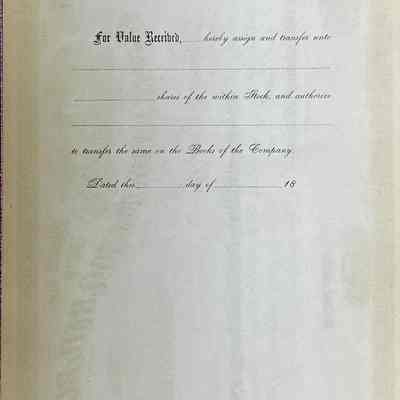 For Value Received, hereby assign and transfer unto
shares of the within Stock, and authorize
to transfer the same on the Books of the Company.
Dated this day of 18